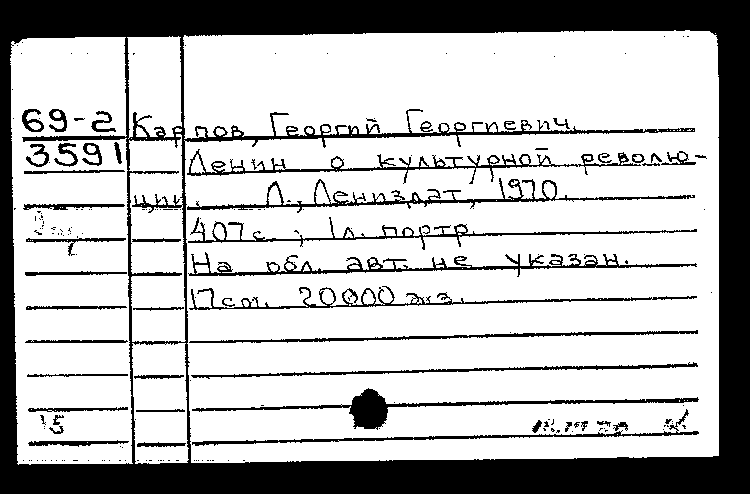 69-2 Карпов, Георгий Георгиевич.
3591 Ленин о культурной револю-
ции. Л., Лениздат, 1970.
407с.; 1л. портр.
На обл. авт. не указан.
17см. 20000 экз.
15